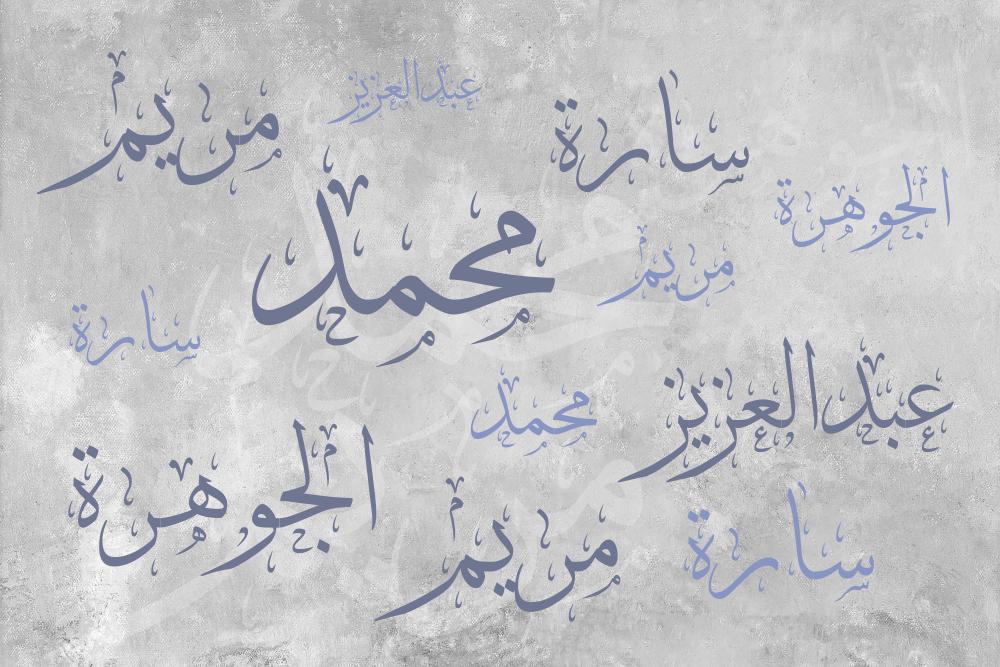 مريم
عبدالعزيز
سارة
محمد
الجوهرة
مريم
سارة
عبدالعزيز
محمد
الجوهرة
مريم
سارة